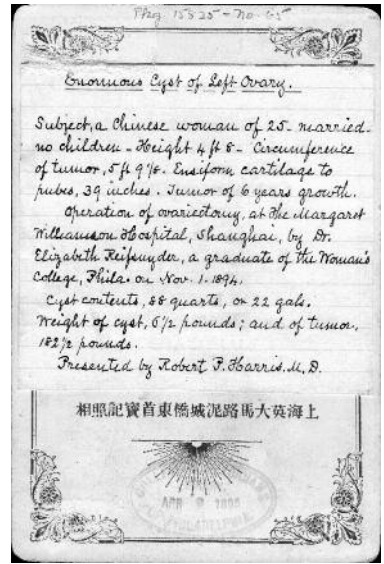 Enormous Cyst of Left Ovary.
Subject, a Chinese woman of 25 - married -
no children - Height 4 ft 8 - Circumference
of tumor, 5 ft 9 1/8. Ensiform cartilage to
pubes, 39 inches. Tumor of 6 years growth.
Operation of ovariectomy, at the Margaret
Williamson Hospital, Shanghai, by Dr.
Elizabeth Reifsnyder, a graduate of the Woman's
College, Phila. on Nov. 1. 1894.
Cyst contents, 88 quarts, or 22 gals.
Weight of cyst, 6 1/2 pounds; and of tumor,
182 1/2 pounds.
Presented by Robert P. Harris, M. D.
相照記寳首東橋城泥路馬大英海上
PHILADELPHIA